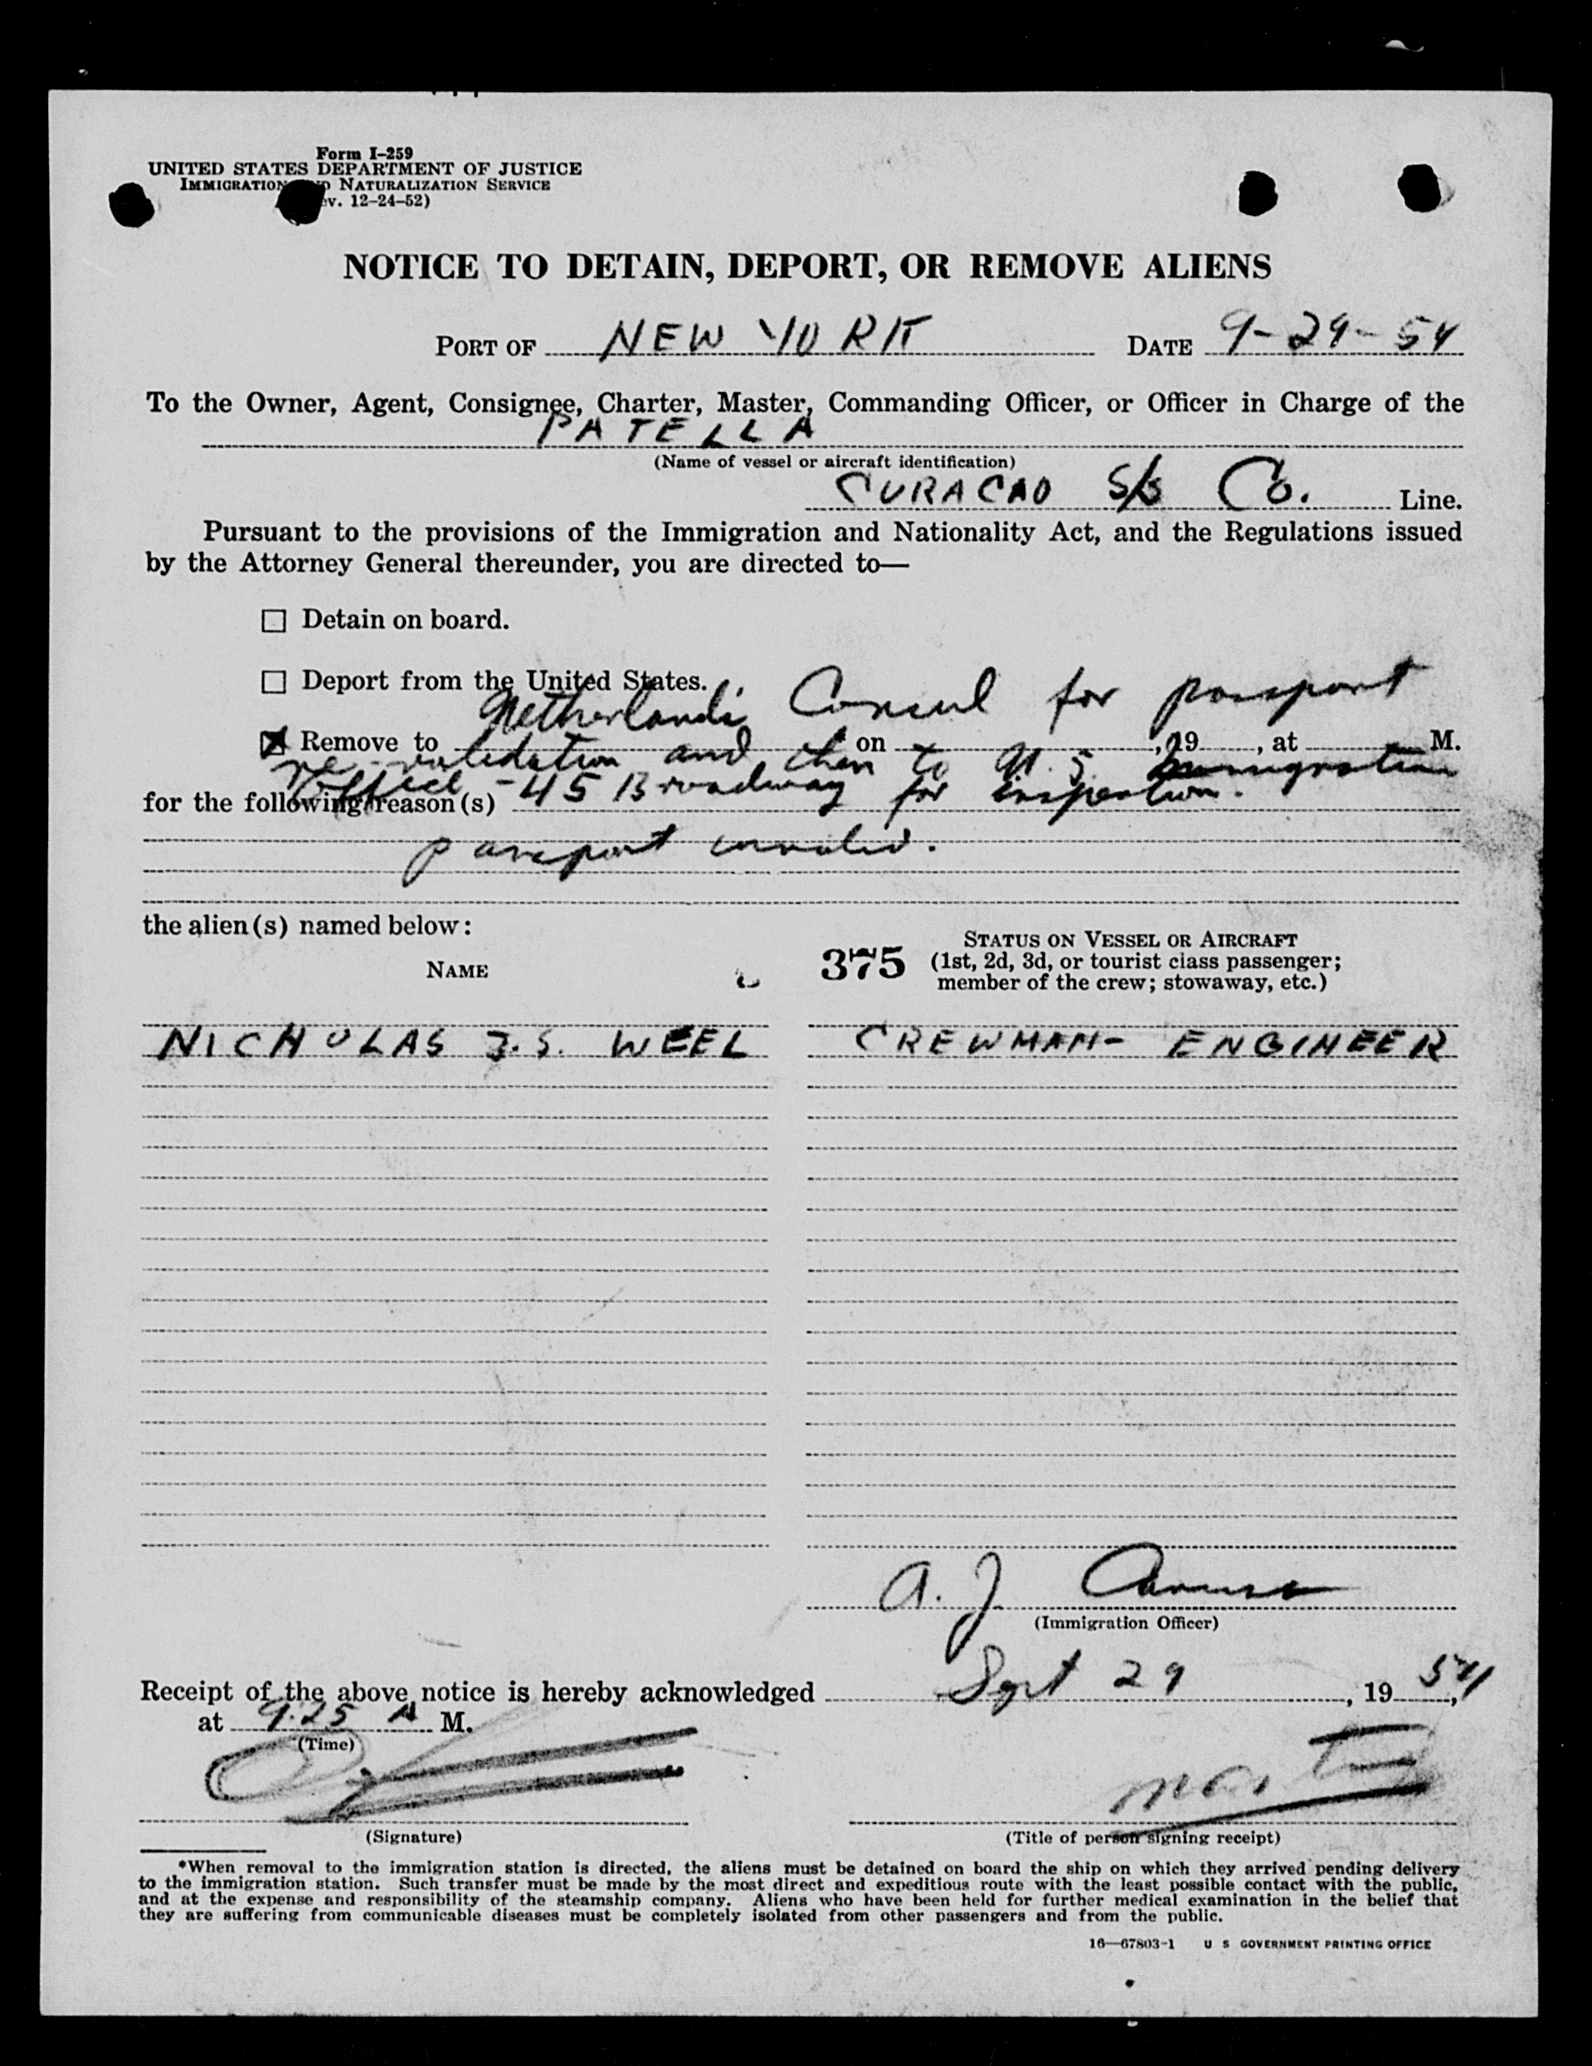 Form I-259
UNITED STATES DEPARTMENT OF JUSTICE
IMMIGRATION AND NATURALIZATION SERVICE
ev. 12-24-52)
NOTICE TO DETAIN, DEPORT, OR REMOVE ALIENS
PORT OF NEW YORK DATE 9-29-54
To the Owner, Agent, Consignee, Charter, Master, Commanding Officer, or Officer in Charge of the
PATELLA
(Name of vessel or aircraft identification)
CURACAO S/S Co. Line.
Pursuant to the provisions of the Immigration and Nationality Act, and the Regulations issued
by the Attorney General thereunder, you are directed to—
☐ Detain on board.
☐ Deport from the United States.
Netherlands Consul for passport
☒ Remove to on , 19 , at M.
re-validation and then to U.S. Immigration
Office - 45 Broadway for inspection.
for the following reason(s)
passport invalid.
the alien(s) named below:
NAME
375
STATUS ON VESSEL OR AIRCRAFT
(1st, 2d, 3d, or tourist class passenger;
member of the crew; stowaway, etc.)
NICHOLAS J.S. WEEL CREWMAN- ENGINEER
A. J. Caruso
(Immigration Officer)
Receipt of the above notice is hereby acknowledged Sept 29, 1954,
at 9.25 A M.
(Time)
(Signature)
(Title of person signing receipt)
*When removal to the immigration station is directed, the aliens must be detained on board the ship on which they arrived pending delivery
to the immigration station. Such transfer must be made by the most direct and expeditious route with the least possible contact with the public,
and at the expense and responsibility of the steamship company. Aliens who have been held for further medical examination in the belief that
they are suffering from communicable diseases must be completely isolated from other passengers and from the public.
16—67803-1 U S GOVERNMENT PRINTING OFFICE